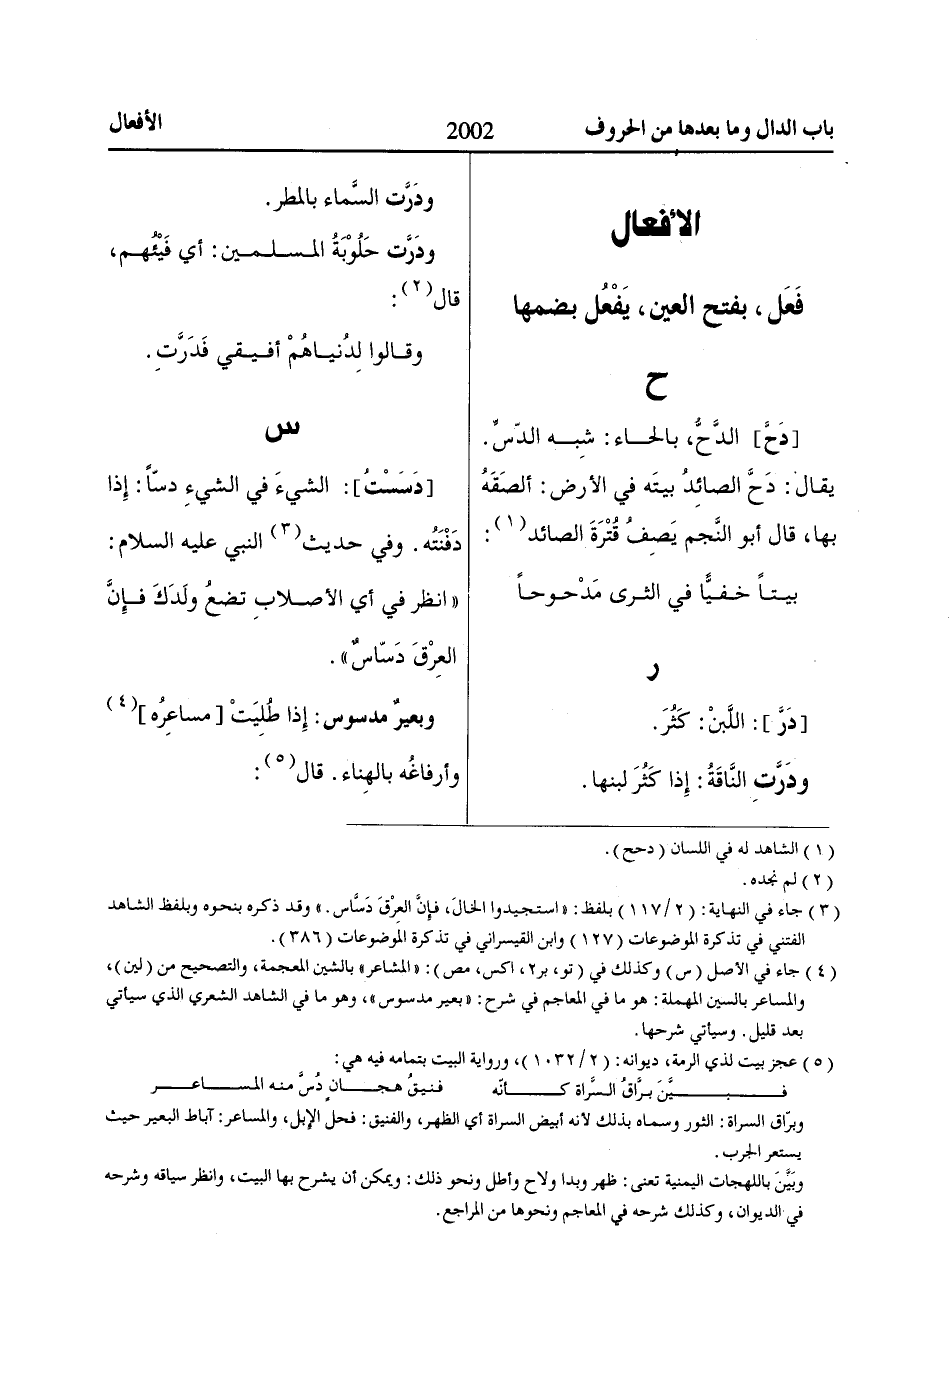 باب الدال وما بعدها من الحروف
2002
الأفعال
الأفعال
فَعَل، بفتح العين، يَفْعُل بضمها
ح
[دَحَّ] الدَّحُّ، بالحـاء: شبه الدّسِّ.
يقال: دَحَّ الصائدُ بيتَه في الأرض: ألصقَهُ
بها، قال أبو النَّجم يَصِفُ قُتْرَةَ الصائد(١):
بيتـاً خـفـيًّا في الثـرى مَدْحـوحـاً
ر
[دَرَّ]: اللَّبنْ: كَثُرَ.
ودَرَّت النَّاقَةُ: إذا كَثُرَ لبنها.
ودَرَّت السَّماء بالمطرِ.
ودَرَّت حَلُوْبَةُ المسلمين: أي فَيْئُهم،
قال(٢):
وقـالوا لِدُنيـاهُمْ أفـيـقي فَدَرَّتِ.
س
[دَسَسْتُ]: الشيءَ في الشيءِ دسّاً: إذا
دَفَنْتَه. وفي حديث(٣) النبي عليه السلام:
«انظر في أي الأصلابِ تضعُ ولَدَكَ فإنَّ
العِرْقَ دَسّاسٌ».
وبعيرٌ مدسوس: إذا طُلِيَتْ [مساعرُه](٤)
وأرفاغُه بالهِناء. قال(٥):
(١) الشاهد له في اللسان (دحح).
(٢) لم نجده.
(٣) جاء في النهاية: (١١٧/٢) بلفظ: «استجيدوا الخالَ، فإنَّ العِرْقَ دَسَّاس.» وقد ذكره بنحوه وبلفظ الشاهد
الفتني في تذكرة الموضوعات (١٢٧) وابن القيسراني في تذكرة الموضوعات (٣٨٦).
(٤) جاء في الأصل (س) وكذلك في (تو، بر٢، اكس، مص): «المشاعر» بالشين المعجمة، والتصحيح من (لين)،
والمساعر بالسين المهملة: هو ما في المعاجم في شرح: «بعير مدسوس»، وهو ما في الشاهد الشعري الذي سيأتي
بعد قليل. وسيأتي شرحها.
(٥) عجز بيت لذي الرمة، ديوانه: (١٠٣٢/٢)، ورواية البيت بتمامه فيه هي:
فـبـيَّنَ برَّاقُ السَّراة كـأنّه فنيقُ هجـانٍ دُسَّ منه المسـاعـر
وبرّاق السراة: الثور وسماه بذلك لأنه أبيض السراة أي الظهر، والفنيق: فحل الإبل، والمساعر: آباط البعير حيث
يستعر الجرب.
وبَيَّنَ باللهجات اليمنية تعنى: ظهر وبدا ولاح وأطل ونحو ذلك: ويمكن أن يشرح بها البيت، وانظر سياقه وشرحه
في الديوان، وكذلك شرحه في المعاجم ونحوها من المراجع.